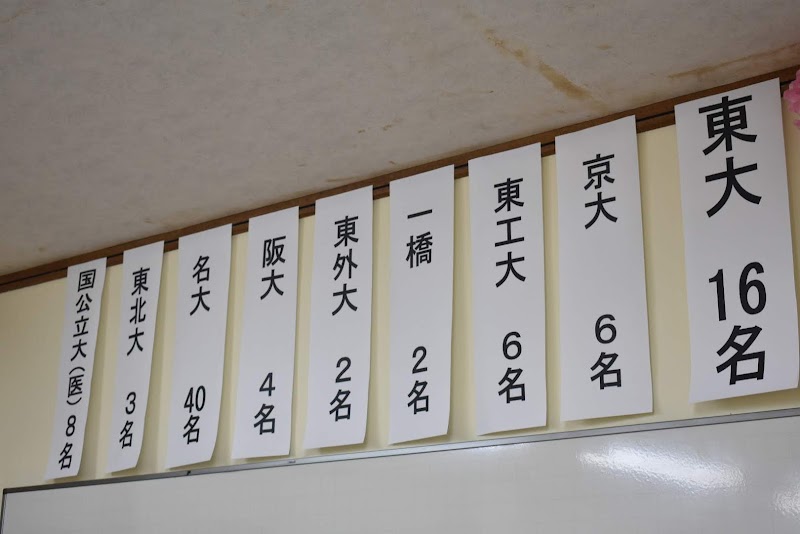 東大 16名
京大 6名
東工大 6名
一橋 2名
東外大 2名
阪大 4名
名大 40名
東北大 3名
国公立大(医) 8名